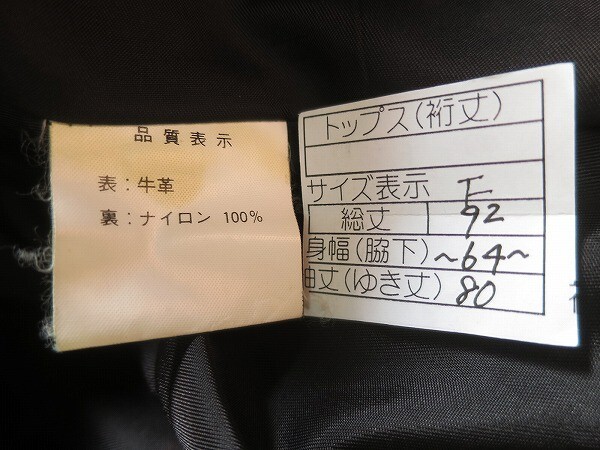 品質表示
表：牛革
裏：ナイロン 100%
トップス(裄丈)
サイズ表示
総丈 92
身幅(脇下) ~64~
丈(ゆき丈) 80